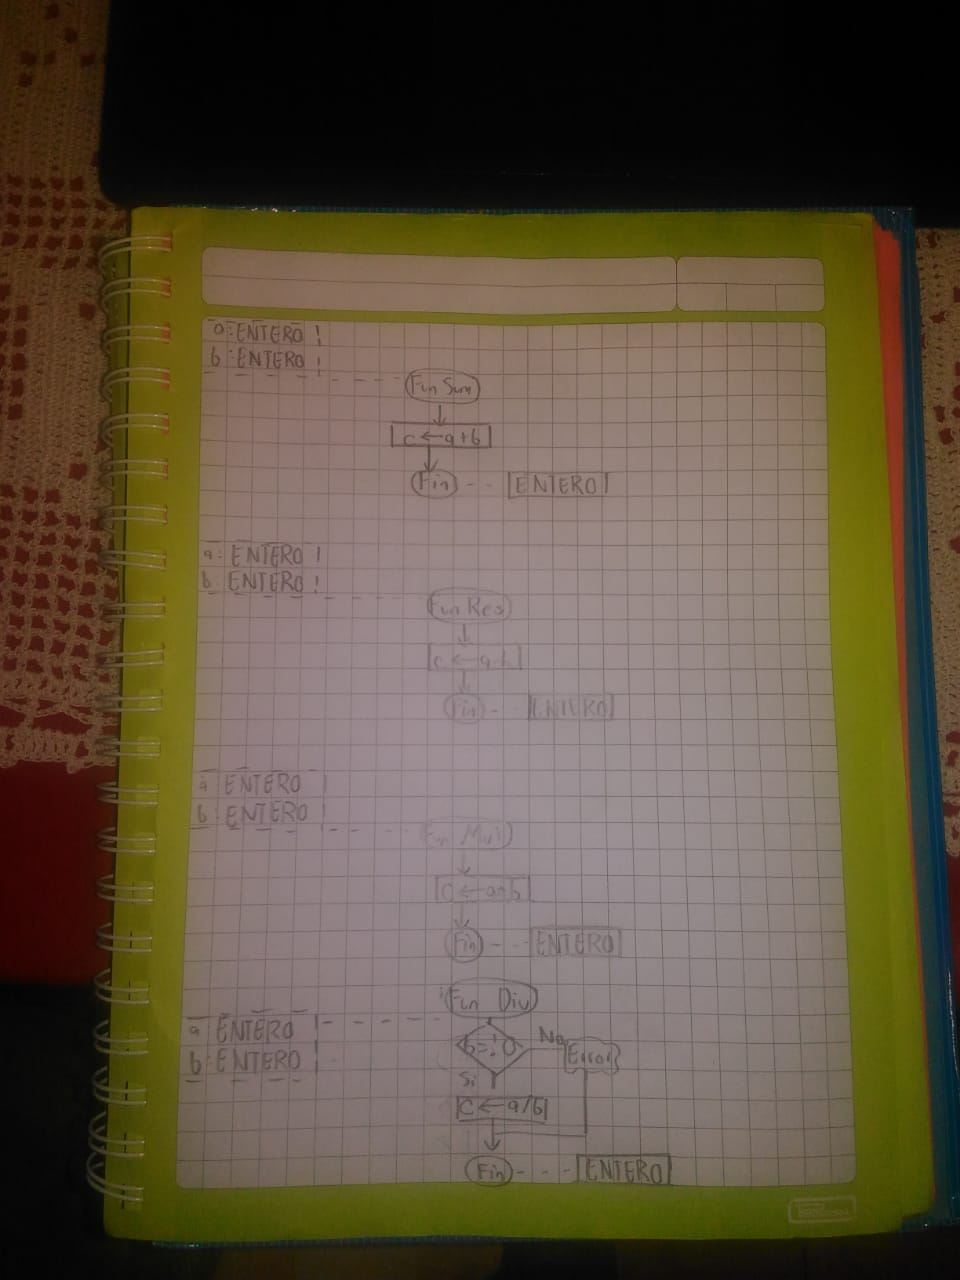 a: ENTERO
b: ENTERO
Fun Sum
c ← a+b
Fin ENTERO
a: ENTERO
b: ENTERO
Fun Res
c ← a-b
Fin ENTERO
a ENTERO
b: ENTERO
Fun Mul
C ← a*b
Fin ENTERO
Fun Div
a ENTERO
b: ENTERO
b=!0 No Error
Si
C ← a/b
Fin ENTERO